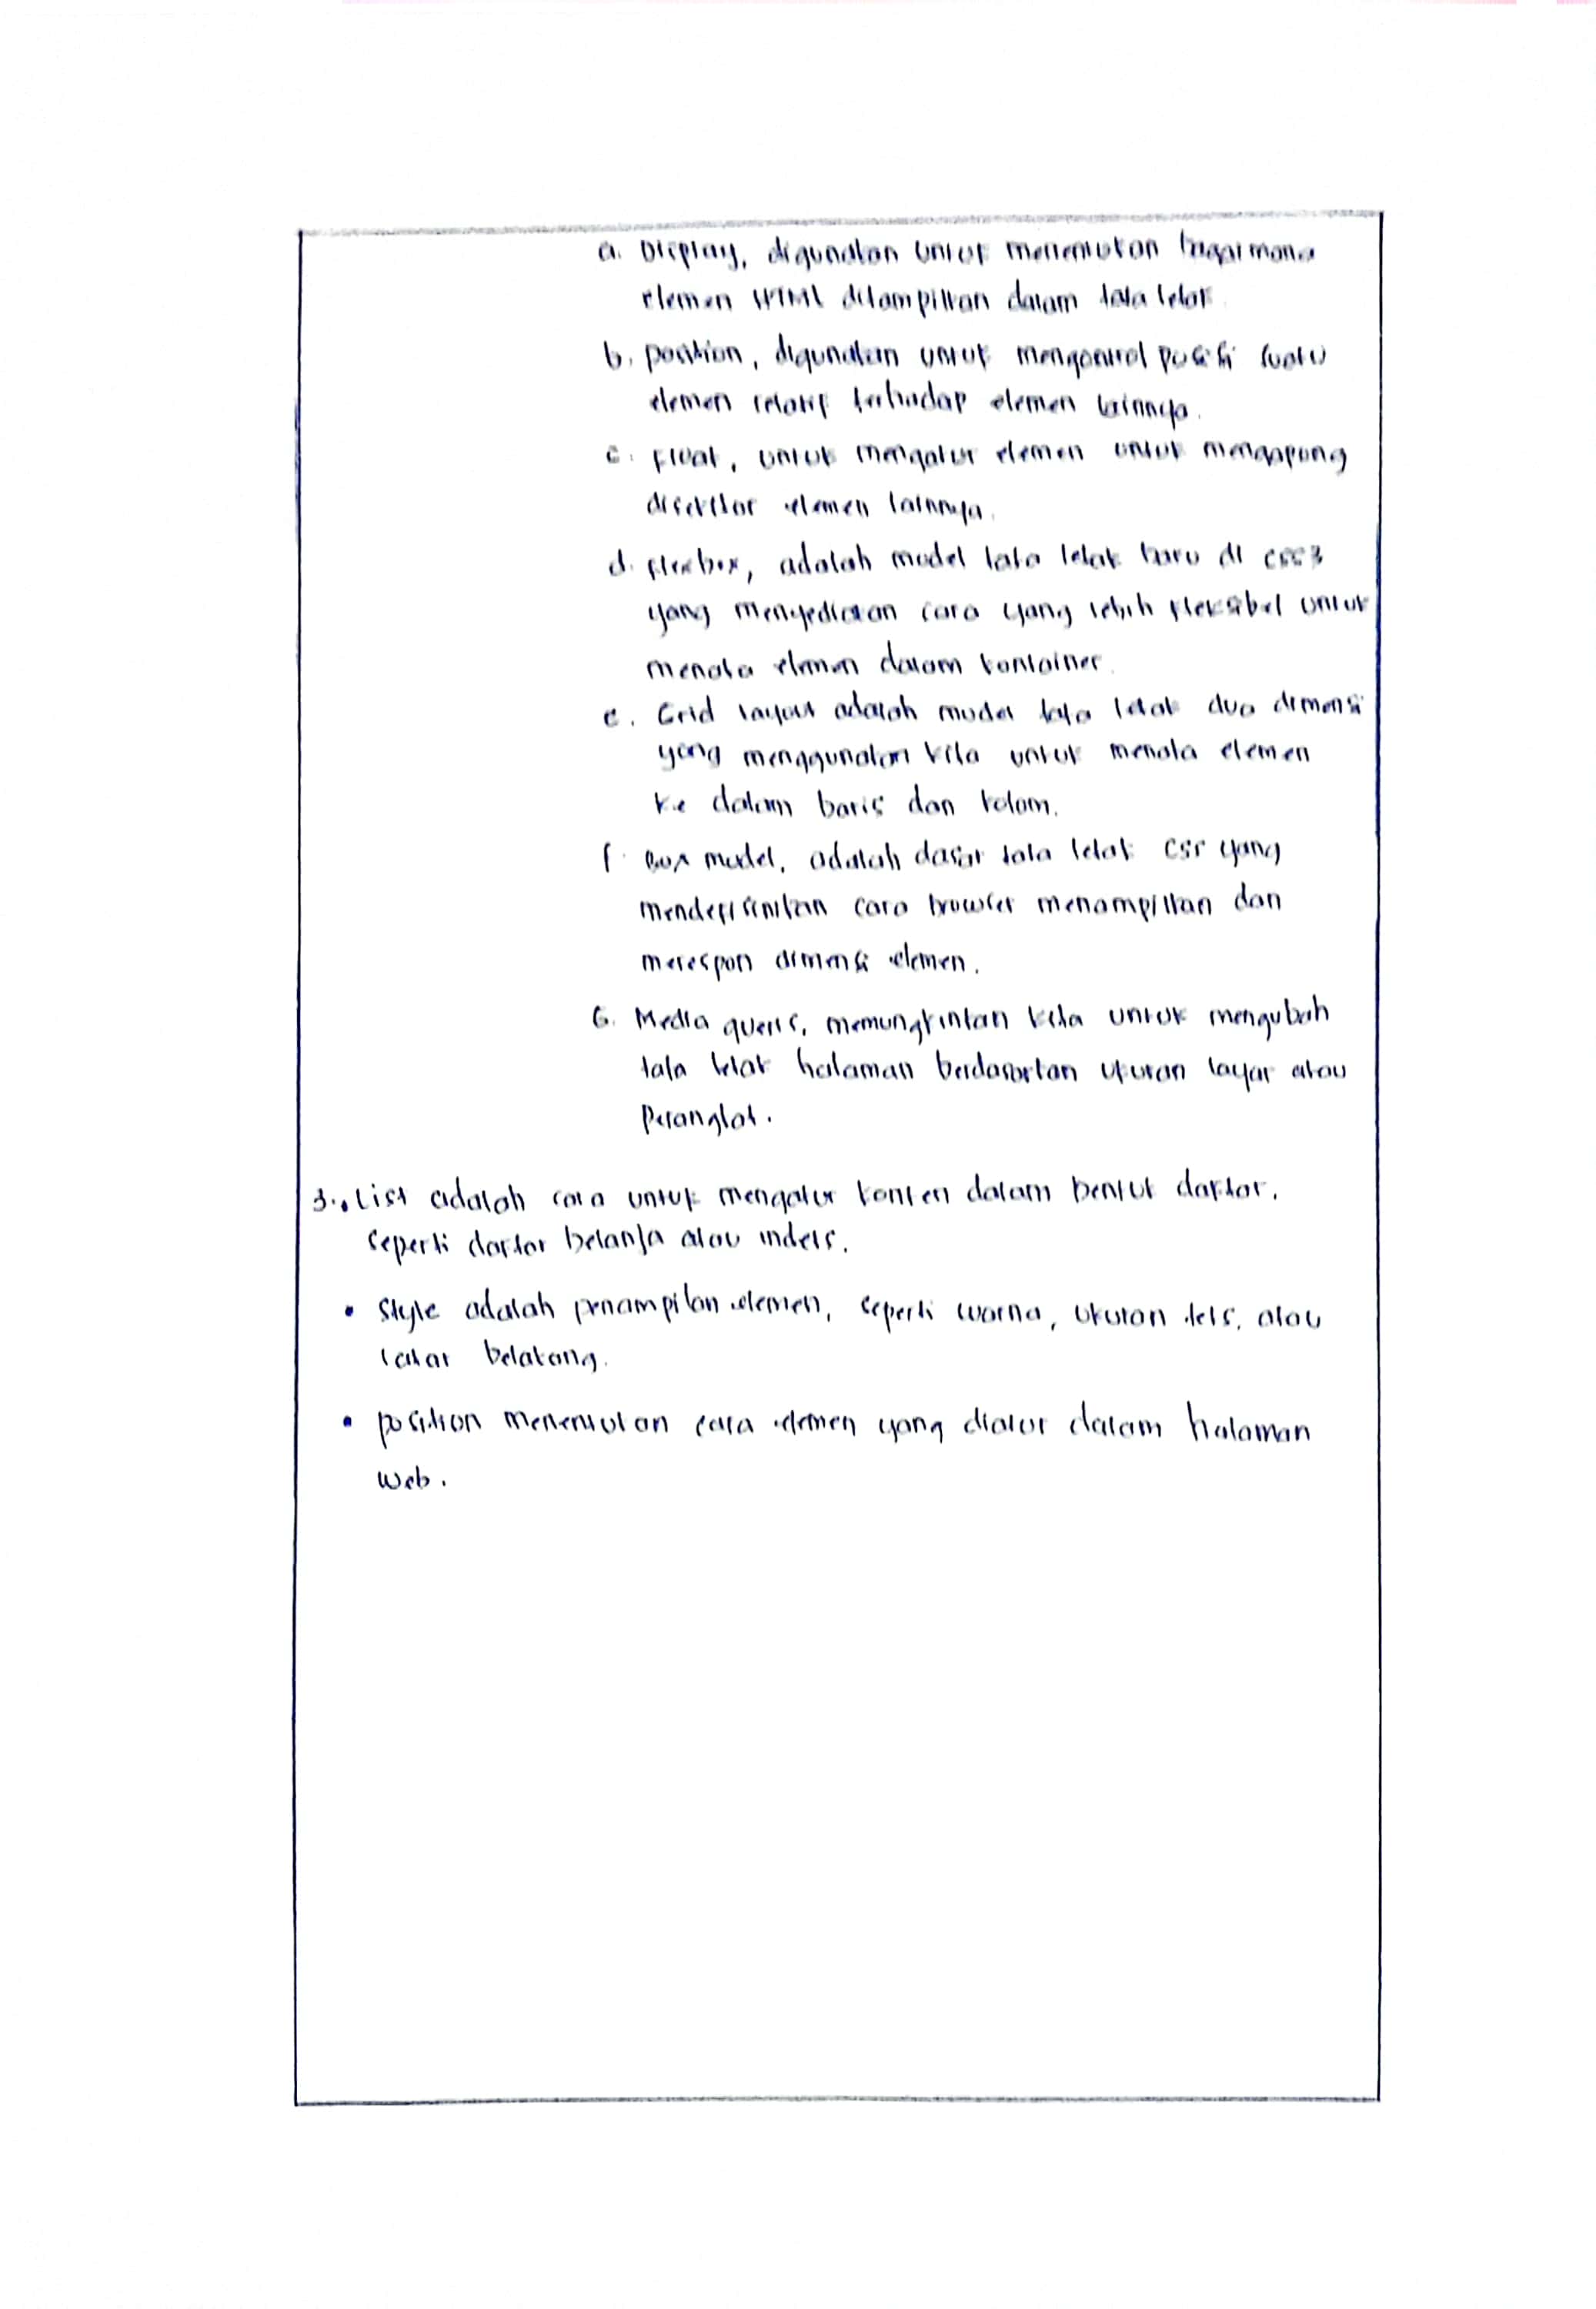 a. Display, digunakan untuk menentukan bagaimana
elemen HTML ditampilkan dalam tata letak.
b. position, digunakan untuk mengontrol posisi suatu
elemen relatif terhadap elemen lainnya.
c. float, untuk mengatur elemen untuk mengapung
disekitar elemen lainnya.
d. flexbox, adalah model tata letak baru di css3
yang menyediakan cara yang lebih fleksibel untuk
menata elemen dalam kontainer.
e. Grid layout adalah model tata letak dua dimensi
yang menggunakan kita untuk menata elemen
ke dalam baris dan kolom.
f. Box model, adalah dasar tata letak css yang
mendefisinikan cara browser menampilkan dan
merespon dimensi elemen.
G. Media queris, memungkinkan kita untuk mengubah
tata letak halaman berdasarkan ukuran layar atau
Perangkat.
3. • List adalah cara untuk mengatur konten dalam bentuk daftar.
seperti daftar belanja atau indeks.
• Style adalah penampilan elemen, seperti warna, ukuran teks, atau
latar belakang.
• position menentukan cara elemen yang diatur dalam halaman
web.